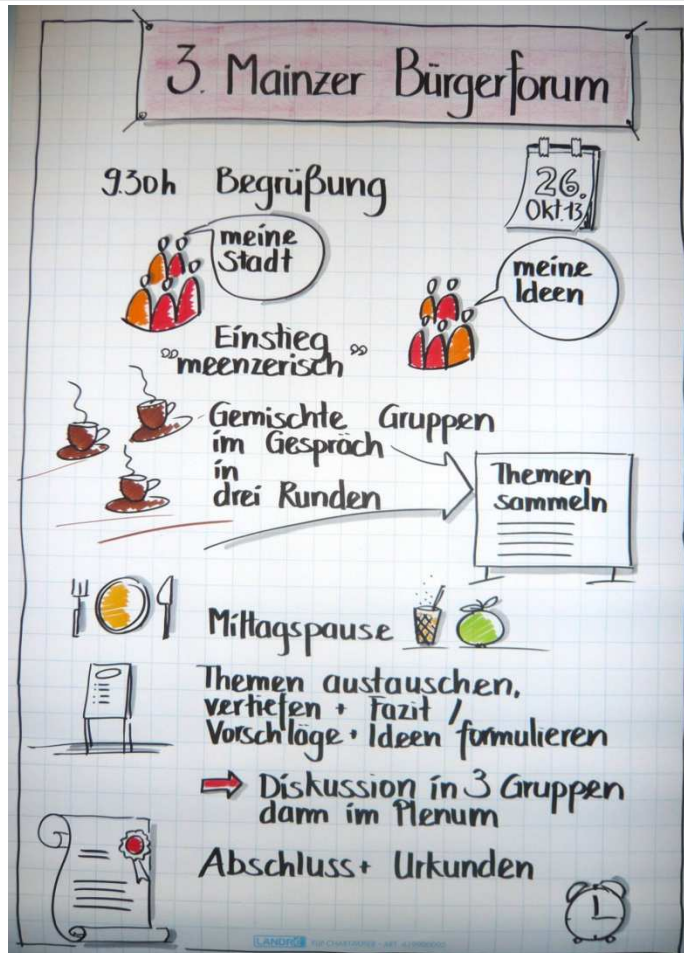 3. Mainzer Bürgerforum
9.30h Begrüßung
26.
Okt.13
meine
Stadt
meine
Ideen
Einstieg
"meenzerisch"
Gemischte Gruppen
im Gespräch
in
drei Runden
Themen
sammeln
Mittagspause
Themen austauschen,
vertiefen + Fazit /
Vorschläge + Ideen formulieren
Diskussion in 3 Gruppen
dann im Plenum
Abschluss + Urkunden
LANDRÉ